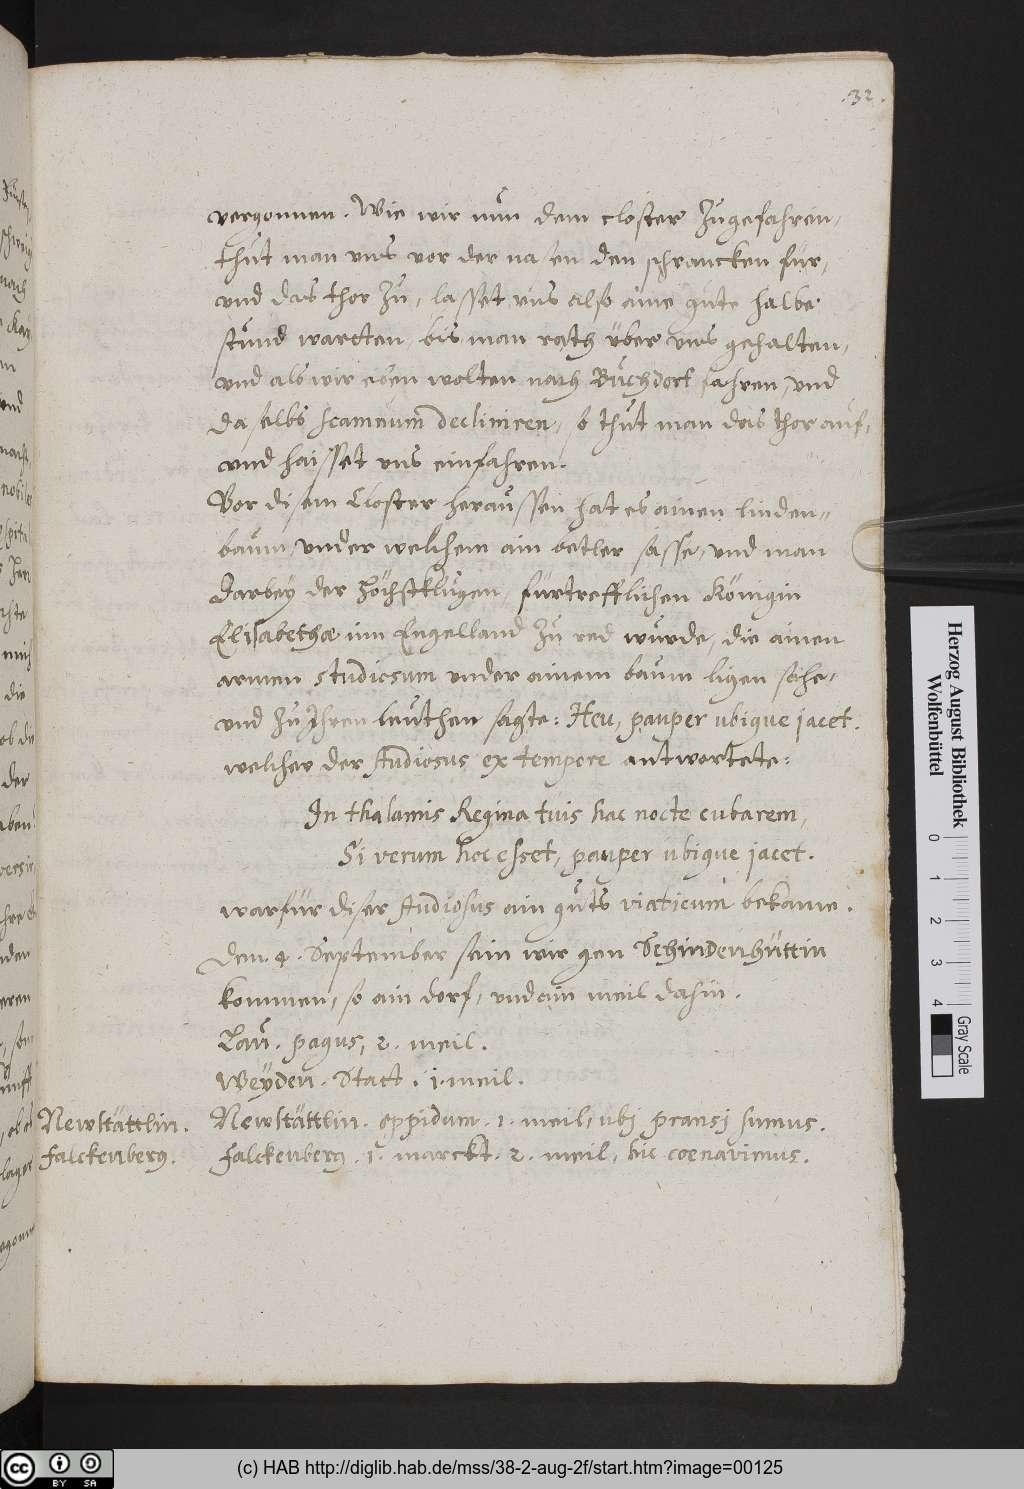 .32.
vergonnen. Wie wir nun dem closter zugefahren,
thut man uns vor der nasen den schrancken für,
und das thor zu, lasset uns also aine gute halbe
stund wartten, bis man rath über uns gehalten,
und als wir eben wolten nach Buchdorf fahren, und
daselbs scamnum decliniren, so thut man das thor auf,
und haisset uns einfahren.
Vor disem Closter heraussen hat es ainen linden-
baum, under welchem ain betler sasse, und man
darbey der höchstklugen, fürtrefflichen Königin
Elisabethæ inn Engelland zu red wurde, die ainen
armen studiosum under ainem baum ligen sahe,
und zu Ihren leuthen sagte: Heu, pauper ubique jacet.
welcher der studiosus ex tempore antwortete:
In thalamis Regina tuis hac nocte cubarem,
Si verum hoc esset, pauper ubique jacet.
warfür diser studiosus ain guts viaticum bekame.
Den 4. September sein wir gen Schindenhüttin
kommen, so ain dorf, und ain meil dahin.
Lau. pagus, 2. meil.
Weyden. Statt. 1. meil.
Newstättlin. Newstättlin. oppidum. 1. meil, ubj pransj sumus.
Falckenberg. Falckenberg. 1. marckt. 2. meil, hic coenavimus.
Herzog August Bibliothek
Wolfenbüttel
0 1 2 3 4
Gray Scale
cc BY SA
(c) HAB http://diglib.hab.de/mss/38-2-aug-2f/start.htm?image=00125